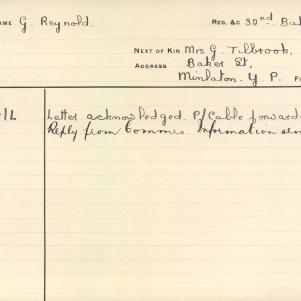 AME G. Reynold. REG. &C 32nd. Bat
NEXT OF KIN Mrs G. Tilbrook,
ADDRESS Baker St,
Minlaton. Y. P. Fo
/L Letter acknowledged. P/Cable forwarde
Reply from Commrs. Information sen